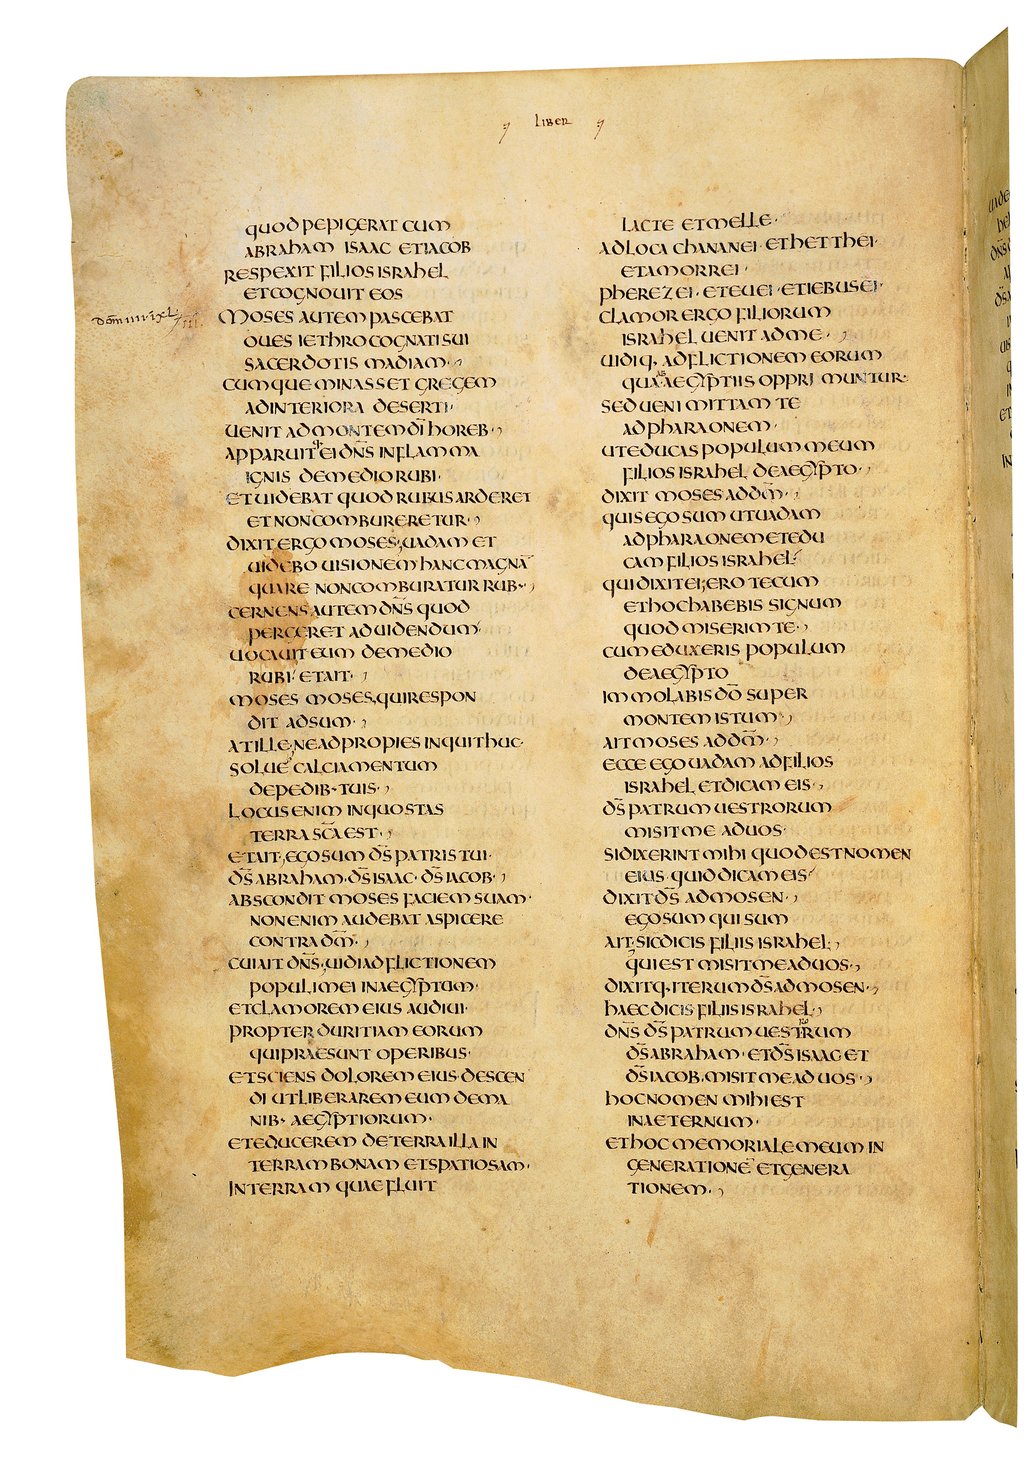 liber
quod pepigerat cum
abraham isaac et iacob
respexit filios israhel
et cognouit eos
Moses autem pascebat
oues iethro cognati sui
sacerdotis madiam·,
cumque minasset gregem
ad interiora deserti·
uenit ad montem dī horeb·,
apparuit ei dn̄s in flamma
ignis de medio rubi·
et uidebat quod rubus arderet
et non combureretur·,
dixit ergo moses; uadam et
uidebo uisionem hanc magnā
quare non comburatur rub·,
cernens autem dn̄s quod
pergeret ad uidendum
uocauit eum de medio
rubi et ait·,
moses moses, qui respon
dit adsum·,
at ille, ne adpropies inquit huc·
solue calciamentum
de pedib· tuis·,
locus enim in quo stas
terra sc̄a est·,
et ait, ego sum ds̄ patris tui·
ds̄ abraham· ds̄ isaac· ds̄ iacob·,
abscondit moses faciem suam·
non enim audebat aspicere
contra dm̄·,
cui ait dn̄s, uidi adflictionem
populi mei in aegyptum·
et clamorem eius audiui·
propter duritiam eorum
qui praesunt operibus·
et sciens dolorem eius descen
di ut liberarem eum de ma
nib· aegyptiorum·
et educerem de terra illa in
terram bonam et spatiosam·
in terram quae fluit
lacte et melle·
ad loca chananei· et hetthei·
et amorrei·
pherezei· et euei· et iebusei·
clamor ergo filiorum
israhel uenit ad me·,
uidiq· adflictionem eorum
qua ab aegyptiis opprimuntur·
sed ueni mittam te
ad pharaonem·
ut educas populum meum
filios israhel de aegypto·,
dixit moses ad dm̄·,
quis ego sum ut uadam
ad pharaonem et edu
cam filios israhel
qui dixit ei; ero tecum
et hoc habebis signum
quod miserim te·,
cum eduxeris populum
de aegypto
immolabis dō super
montem istum·,
ait moses ad dm̄·,
ecce ego uadam ad filios
israhel et dicam eis·,
ds̄ patrum uestrorum
misit me ad uos·
si dixerint mihi quod est nomen
eius· quid dicam eis
dixit ds̄ ad mosen·,
ego sum qui sum
ait· sic dicis filiis israhel·,
qui est misit me ad uos·,
dixitq· iterum ds̄ ad mosen·,
haec dicis filiis israhel·,
dn̄s ds̄ patrum uestrorum
ds̄ abraham· et ds̄ isaac et
ds̄ iacob· misit me ad uos·,
hoc nomen mihi est
in aeternum·
et hoc memoriale meum in
generatione et genera
tionem·,